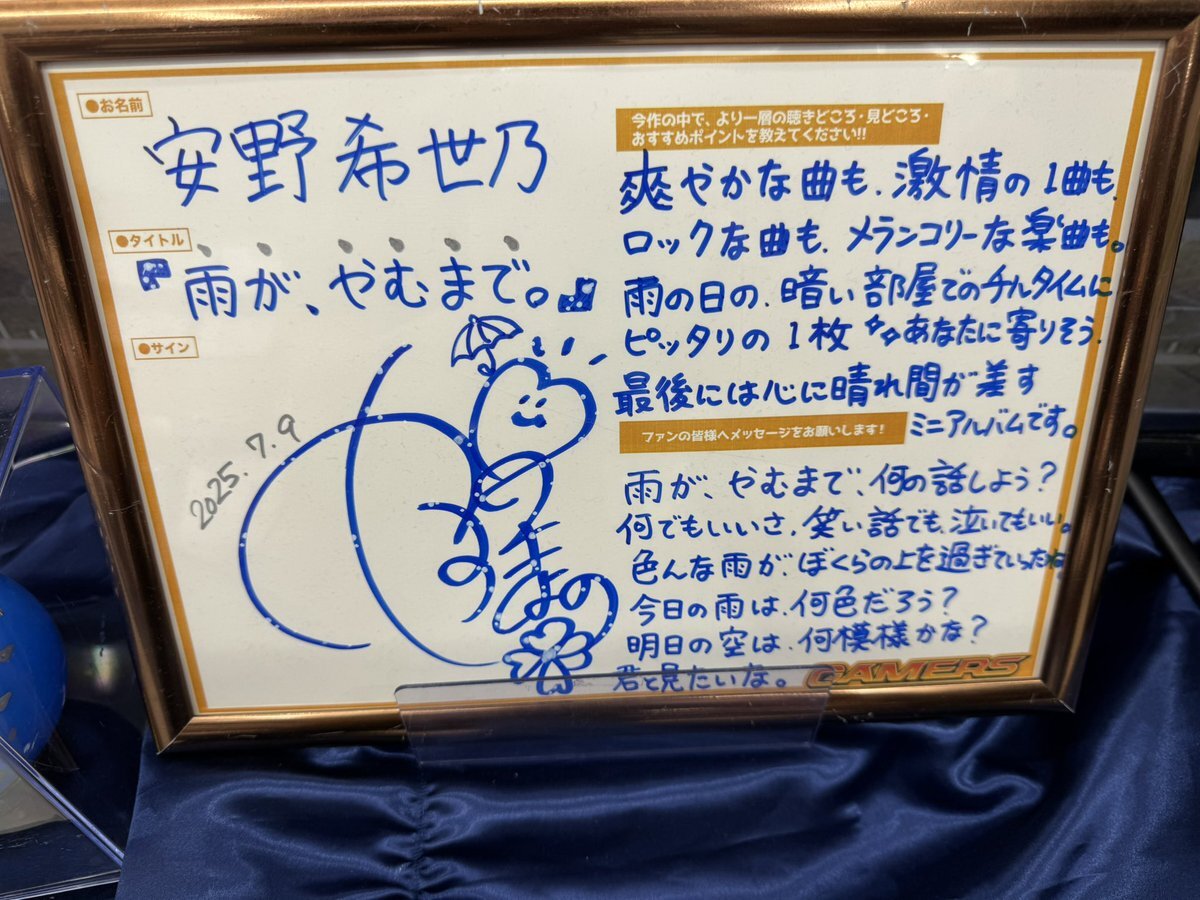 ●お名前
安野希世乃
●タイトル
『雨が、やむまで。』
●サイン
2025.7.9
きよの
今作の中で、より一層の聴きどころ・見どころ・
おすすめポイントを教えてください!!
爽やかな曲も、激情の1曲も、
ロックな曲も、メランコリーな楽曲も。
雨の日の、暗い部屋でのチルタイムに
ピッタリの1枚 あなたに寄りそう、
最後には心に晴れ間が差す
ミニアルバムです。
ファンの皆様へメッセージをお願いします!
雨が、やむまで、何の話しよう?
何でもいいさ、笑い話でも、泣いてもいい。
色んな雨が、ぼくらの上を過ぎていったね
今日の雨は、何色だろう?
明日の空は、何模様かな?
君と見たいな。
GAMERS